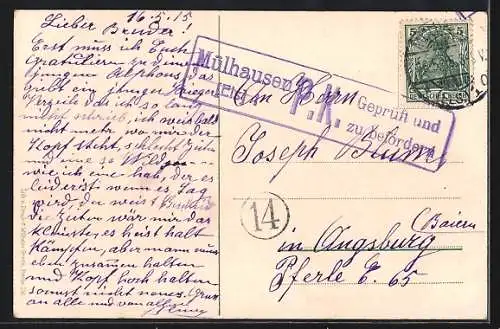 16.5.15
Lieber Bruder!
Erst muss ich Euch
Gratulieren zu eine
jungen Alphons das
gibt ein junger Krieger
Verzeih das ich so lang
nicht schrieb, ich weis bald
nicht mehr wo mir der
Kopf steht, schlecht Zeiten
und eine so
wie ich eine hab, der es
leid erist wenn es Tag
wird, du weist
die Zeiten wär mir das
kleinste, es heist halt
kämpfen, aber mann muss
eben zusamen halten
und Kopf hoch halten
sonst nicht neues. Gruss
an alle und von allen
Mülhausen i. Els.
P.K.
Geprüft und
zu befördern
An Herrn
Joseph
14
(Baiern)
in Augsburg
Pferle E. 65
5 5